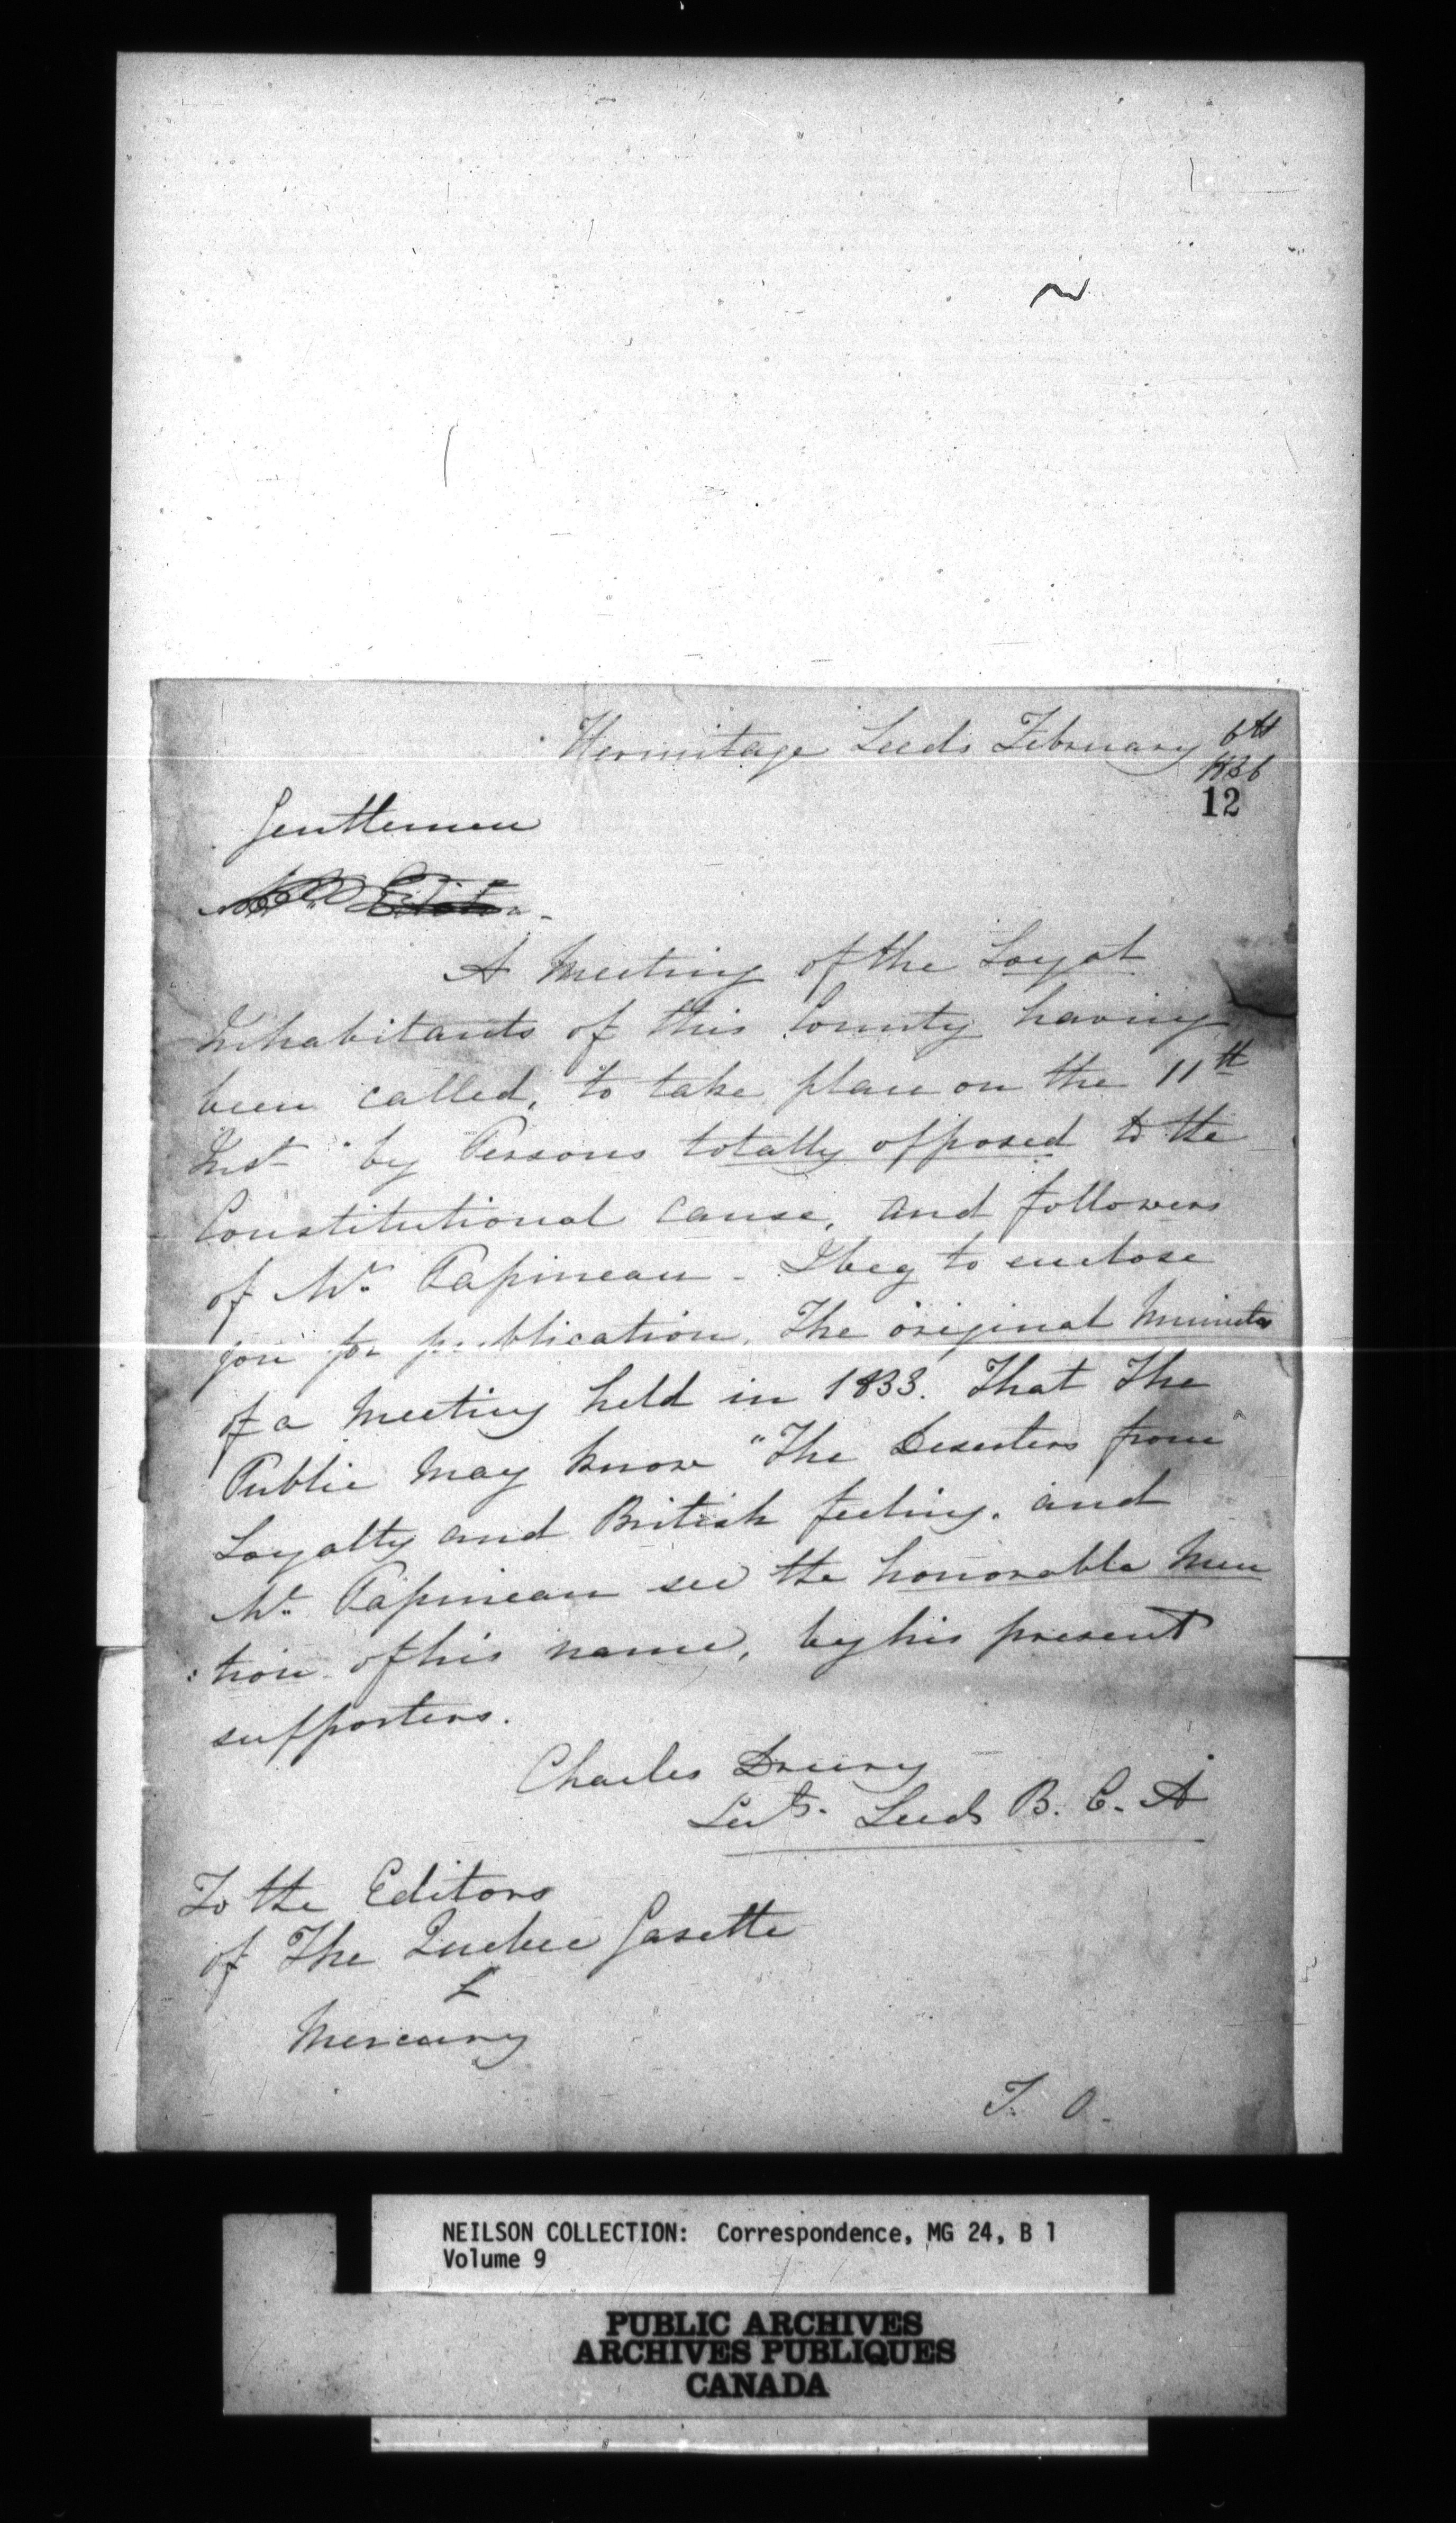 Hermitage Leeds February 6th
1836
12
Gentlemen
A Meeting of the Loyal
Inhabitants of this County having
been called, to take place on the 11th
Inst by Persons totally opposed to the
Constitutional cause, and followers
of Mr. Papineau - I beg to enclose
you for publication, The original Minutes
of a Meeting held in 1833. That The
Public May know "The Deserters from
Loyalty and British feeling, and
Mr. Papineau see the honorable Men
: tion of his name, by his present
supporters.
Charles Drury
Leeds B. C. A
To the Editors
of The Quebec Gasette
&
Mercury
T. O.
NEILSON COLLECTION: Correspondence, MG 24, B 1
Volume 9
PUBLIC ARCHIVES
ARCHIVES PUBLIQUES
CANADA